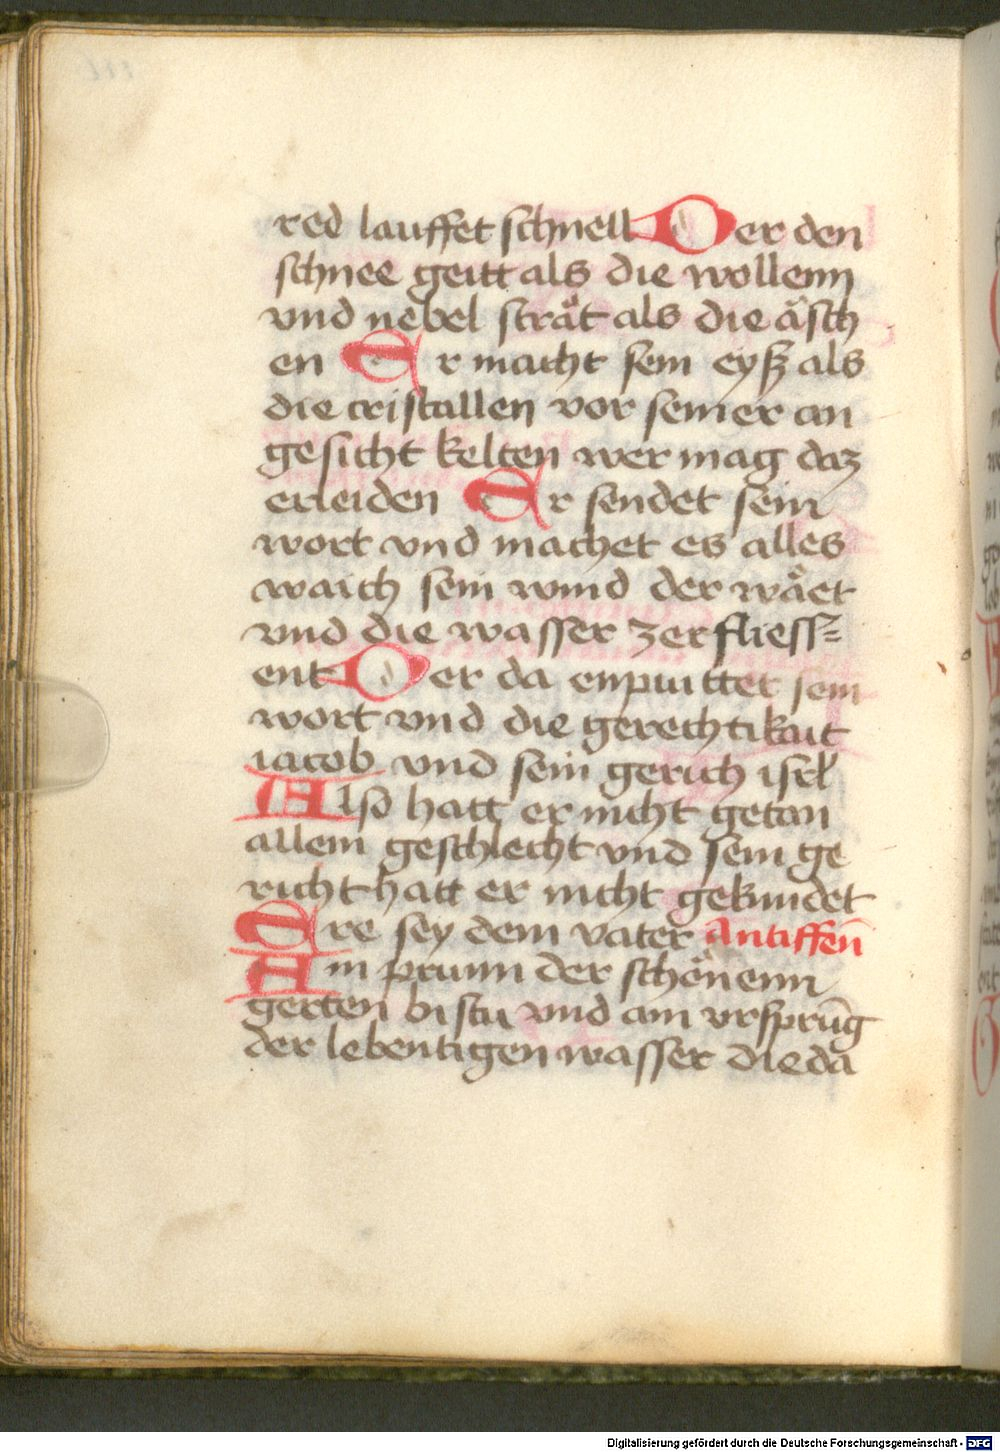 red lauffet schnell Der den
schnee geitt als die wollenn
vnd nebel strät als die äsch
en Er macht sein eyß als
die cristallen vor seiner an
gesicht kelten wer mag daz
erleiden Er sendet sein
wort vnd machet es alles
waich sein wind der wäet
vnd die wasser zerfliess=
ent Der da enpuittet sein
wort vnd die gerechtikait
iacob vnd sein gerich isrl
Also hatt er nicht getan
allem geschlecht vnd sein ge
richt hatt er nicht gekundet
Ere sey dem vater Antiffen̄
Ain prunn der schönenn
gerten bistu vnd ain vrsprūg
der lebentigen wasser die da
Digitalisierung gefördert durch die Deutsche Forschungsgemeinschaft - DFG